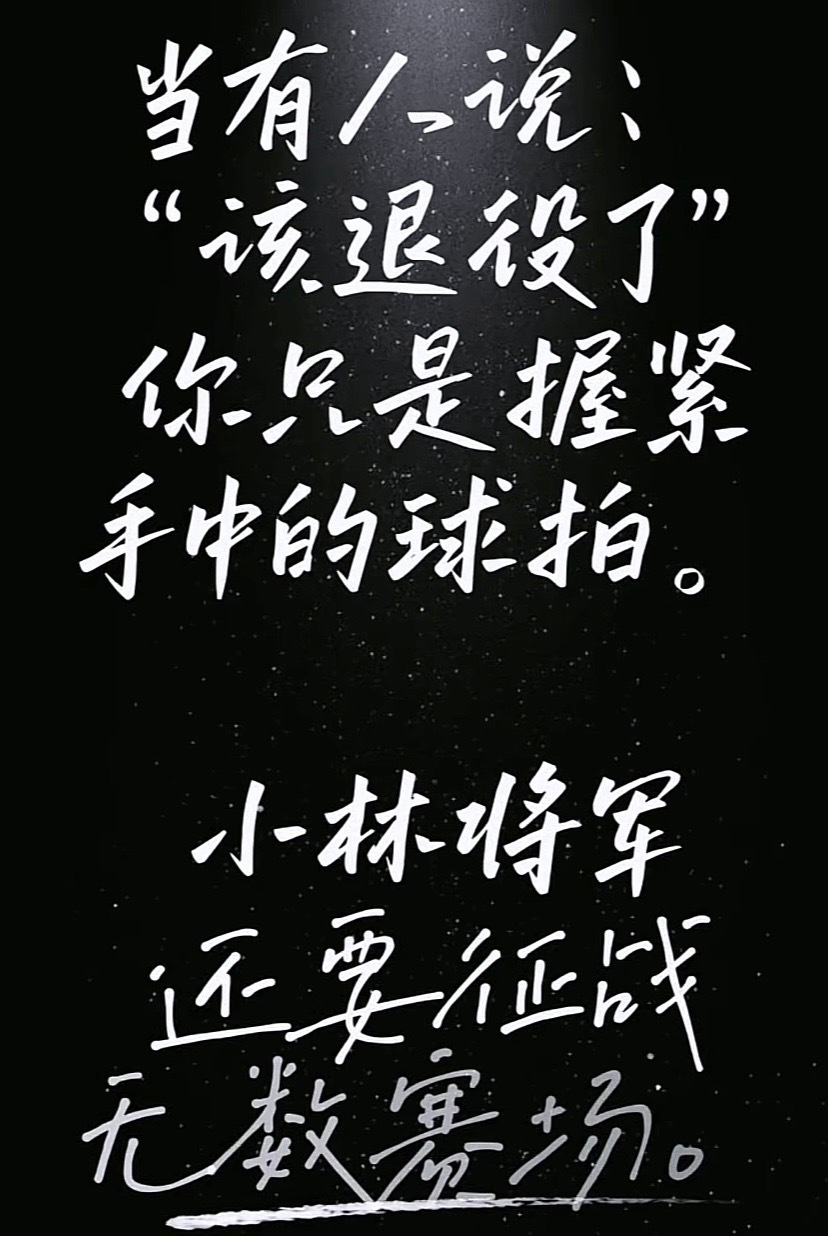 当有人说：
“该退役了”
你只是握紧
手中的球拍。
小林将军
还要征战
无数赛场。